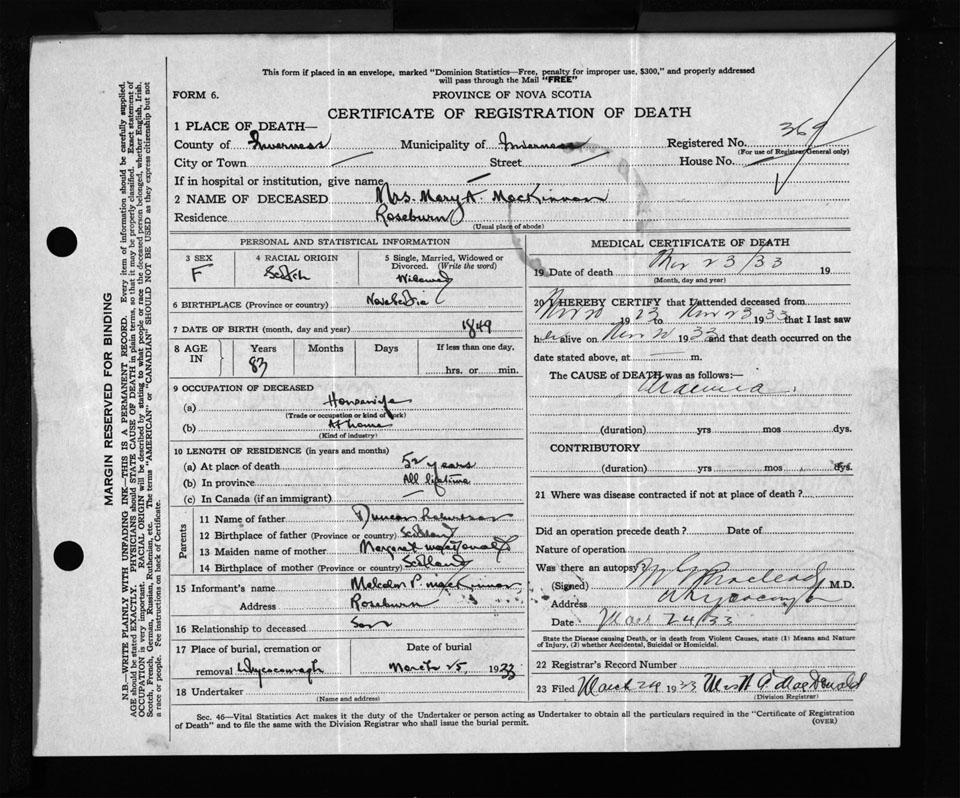 This form if placed in an envelope, marked "Dominion Statistics—Free, penalty for improper use, $300," and properly addressed
will pass through the Mail "FREE"
FORM 6.
PROVINCE OF NOVA SCOTIA
CERTIFICATE OF REGISTRATION OF DEATH
1 PLACE OF DEATH—
County of Inverness Municipality of Inverness Registered No. 369
(For use of Registrar General only)
City or Town — Street — House No. —
If in hospital or institution, give name —
2 NAME OF DECEASED Mrs. Mary A. MacKinnon
Residence Roseburn
(Usual place of abode)
PERSONAL AND STATISTICAL INFORMATION
3 SEX F
4 RACIAL ORIGIN Scotch
5 Single, Married, Widowed or Divorced. (Write the word) Widowed
6 BIRTHPLACE (Province or country) Nova Scotia
7 DATE OF BIRTH (month, day and year) 1849
8 AGE IN Years 83 Months Days If less than one day. hrs. or min.
9 OCCUPATION OF DECEASED
(a) Housewife
(Trade or occupation or kind of work)
(b) At home
(Kind of industry)
10 LENGTH OF RESIDENCE (in years and months)
(a) At place of death 52 years
(b) In province All lifetime
(c) In Canada (if an immigrant) —
Parents
11 Name of father Duncan
12 Birthplace of father (Province or country) Scotland
13 Maiden name of mother Margaret MacDonald
14 Birthplace of mother (Province or country) Scotland
15 Informant's name Malcolm P. MacKinnon
Address Roseburn
16 Relationship to deceased Son
17 Place of burial, cremation or removal Whycocomagh
Date of burial March 25, 1933
18 Undertaker
(Name and address)
MEDICAL CERTIFICATE OF DEATH
19 Date of death Mar 23/33 19
(Month, day and year)
20 I HEREBY CERTIFY that I attended deceased from
Mar 20 1923 to Mar 23 1933 that I last saw
her alive on Mar 20 1933 and that death occurred on the
date stated above, at — m.
The CAUSE of DEATH was as follows:—
Uraemia
(duration) yrs mos dys.
CONTRIBUTORY
(duration) yrs mos dys.
21 Where was disease contracted if not at place of death?
Did an operation precede death? Date of
Nature of operation
Was there an autopsy?
(Signed) MacLeod M.D.
Address Whycocomagh
Date Mar 24/33
State the Disease causing Death, or in death from Violent Causes, state (1) Means and Nature
of Injury, (2) whether Accidental, Suicidal or Homicidal.
22 Registrar's Record Number
23 Filed March 24 1933 MacDonald
(Division Registrar)
Sec. 46—Vital Statistics Act makes it the duty of the Undertaker or person acting as Undertaker to obtain all the particulars required in the "Certificate of Registration
of Death" and to file the same with the Division Registrar who shall issue the burial permit.
(OVER)
MARGIN RESERVED FOR BINDING
N.B.—WRITE PLAINLY WITH UNFADING INK—THIS IS A PERMANENT RECORD. Every item of information should be carefully supplied.
AGE should be stated EXACTLY. PHYSICIANS should STATE CAUSE OF DEATH in plain terms, so that it may be properly classified. Exact statement of
OCCUPATION is very important. RACIAL ORIGIN will be described by stating to what people or race the deceased person belonged, whether English, Irish,
Scotch, French, German, Russian, Ruthenian, etc. The terms "AMERICAN" or "CANADIAN" SHOULD NOT BE USED as they express citizenship but not
a race or people. Fee instructions on back of Certificate.